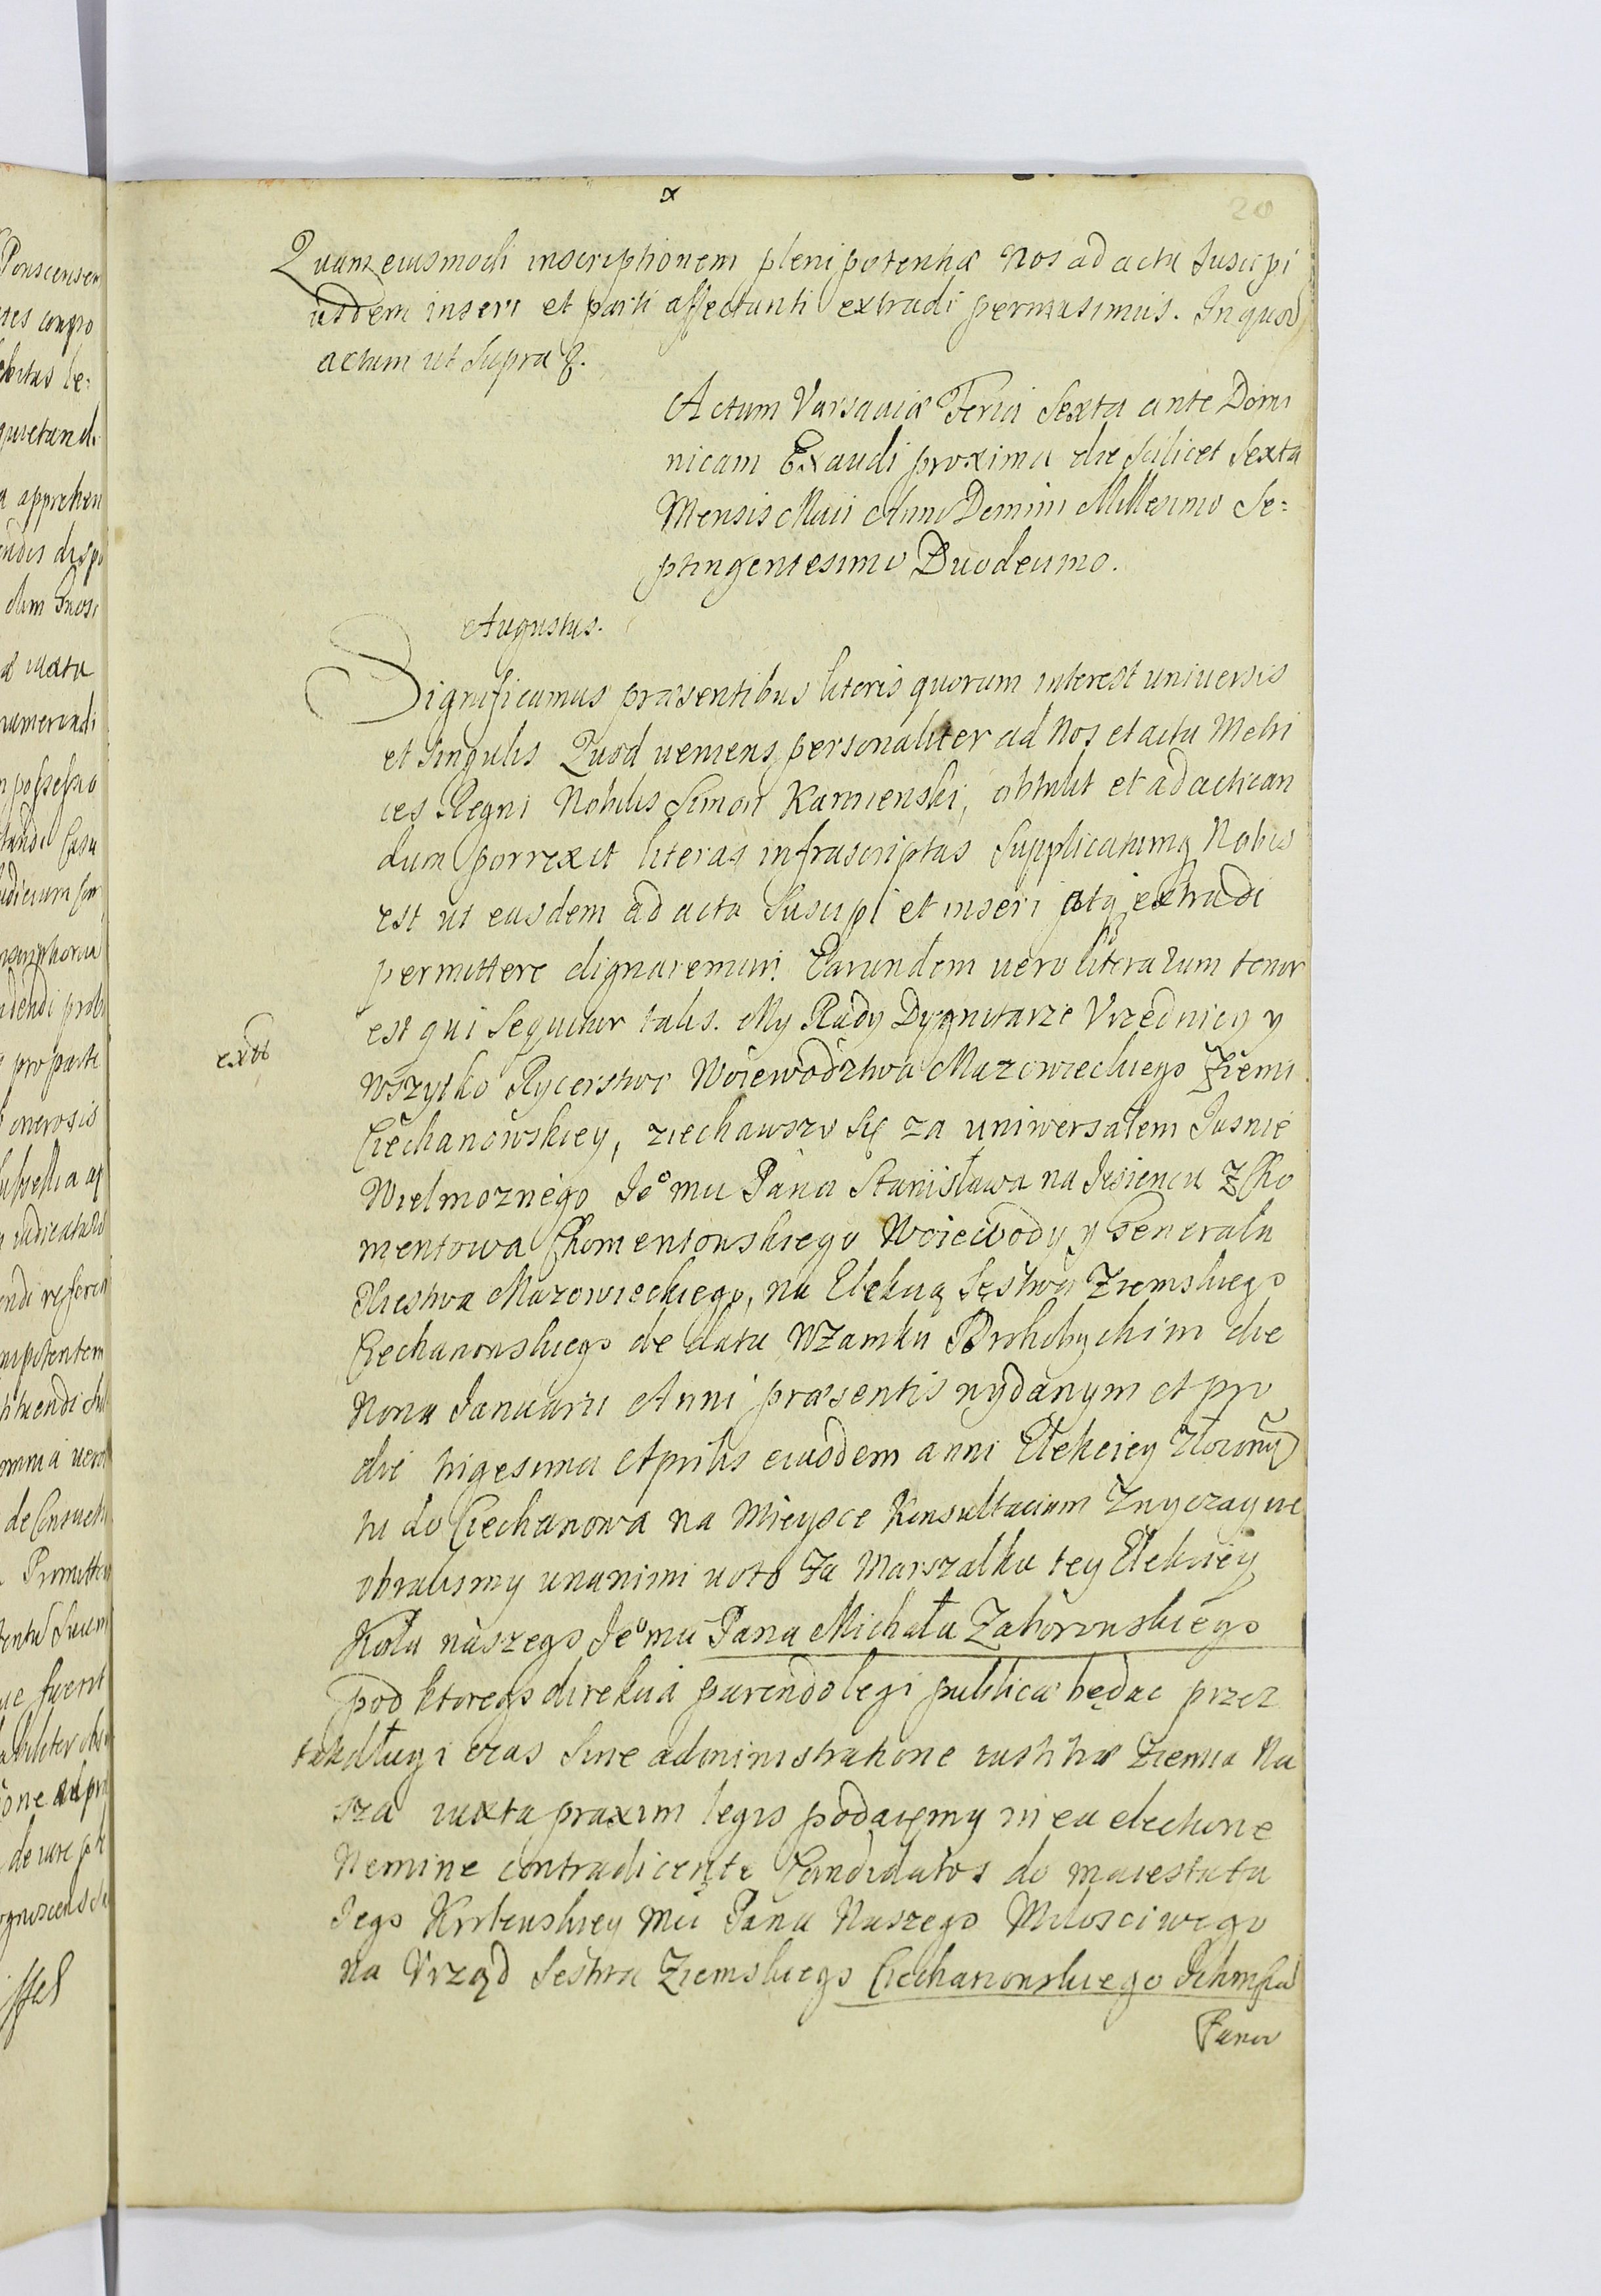 20
Quam eiusmodi inscriptionem plenipotentiæ Nos ad acta suscipi
iisdem inseri et parti affectanti extradi permisimus. In quod
actum ut supra &.
Actum Varsaviæ Feria Sexta ante Domi
nicam Exaudi proxima die scilicet Sexta
Mensis Maii Anno Domini Millesimo Se=
ptingentesimo Duodecimo.
Augustus.
Significamus præsentibus literis quorum interest universis
et singulis Quod veniens personaliter ad Nos et acta Metri
ces Regni Nobilis Simon Kamienski, obtulit et ad actican
dum porrexit literas infrascriptas Supplicatumq Nobis
est ut easdem ad acta suscipi et inseri atq extradi
permittere dignaremur. Earundem vero literarum tenor
est qui sequitur talis. My Rady Dygnitarze Vrzednicy y
exti
wszytko Rycerstwo Woiewodztwa Mazowieckiego Ziemi
Ciechanowskiey, ziechawszy się za uniwersałem Jasnie
Wielmoznego Je°mu Pana Stanisława na Jesiencu Z Cho
mentowa Chomentowskiego Woiewody y Generała
Xiestwa Mazowieckiego, na Elekcią Sęstwa Ziemskiego
Ciechanowskiego de data w Zamku Drohobyckim die
Nona Januarii Anni præsentis wydanym et pro
die vigesima Aprilis eiusdem anni Elekciey Złozony
tu do Ciechanowa na Mieysce Konsultaciom Zwyczayne
obralismy unanimi voto Za Marszałka tey Elekciey
Koła naszego Je°mu Pana Michała Zaborowskiego
pod ktorego direkcią parendo legi publicæ będąc przez
tak długi czas sine administratione iustitiæ Ziemia Na
sza iuxta praxim legis podaięmy in ea electione
Nemine contradicente Candidatos do maiestatu
Jego Krolewskiey Mci Pana Naszego Miłosciwego
na Vrząd Sęstwa Ziemskiego Ciechanowskiego Ichmscio
Panow